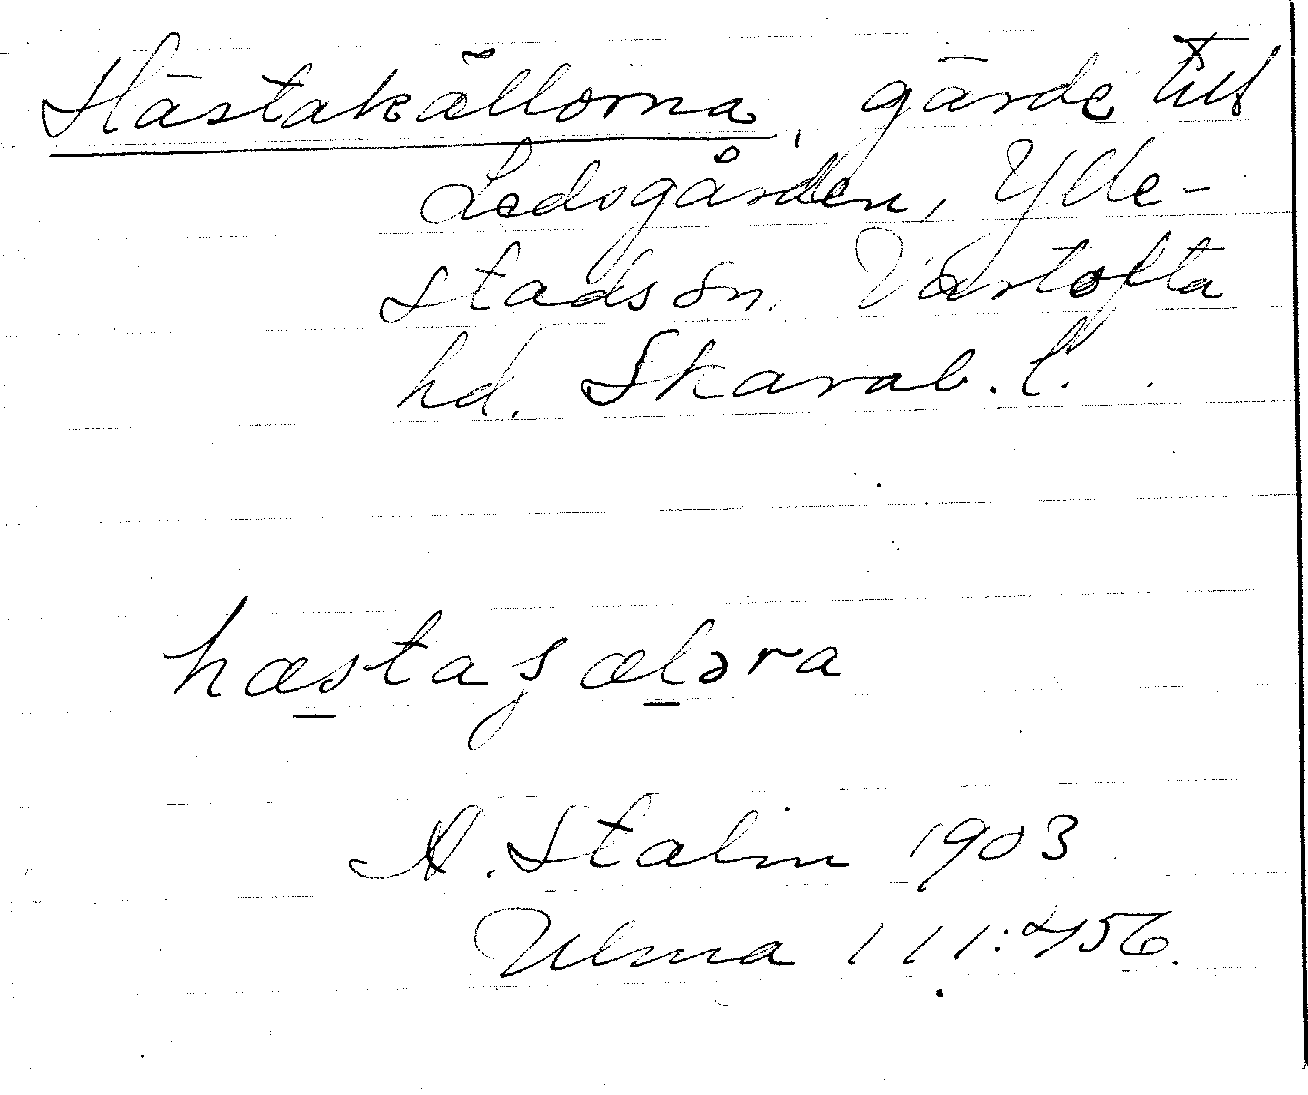 Hästakällorna, gärde till
Ledsgården, Ylle-
stads sn. Vartofta
hd. Skarab. l.
hæsta ʂælɔra
A. Stalin 1903
Ulma 111:456.